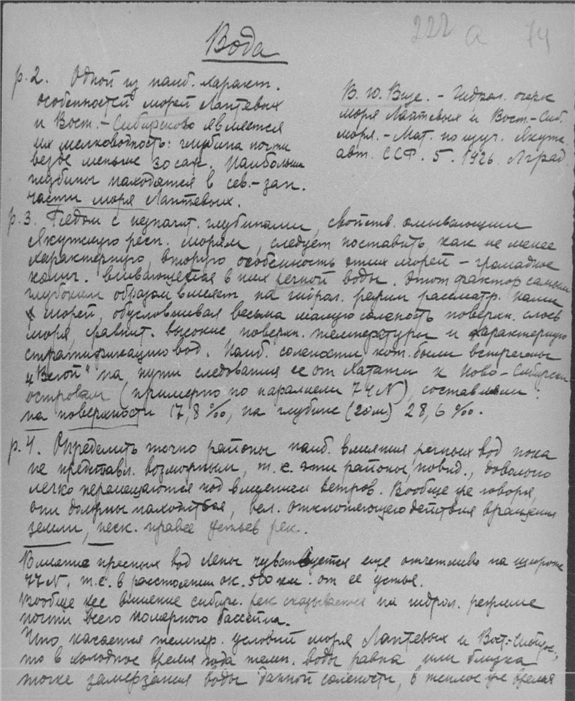 222 а 74
Вода
р. 2. Одной из наиб. характ.
особенностей морей Лаптевых
и Вост.-Сибирского является
их мелководность: глубина почти
везде меньше 30 саж. Наибольш.
глубины находятся в сев.-зап.
части моря Лаптевых.
В. Ю. Визе. - Гидрол. очерк
моря Лаптевых и Вост.-Сиб.
моря. - Мат. по изуч. Якутс.
авт. ССР. 5. 1926. Лград
р. 3. Рядом с незначит. глубинами, свойств. омывающим
Якутскую респ. морям, следует поставить, как не менее
характерную, вторую особенность этих морей - громадное
колич. вливающейся в них речной воды. Этот фактор самым
глубоким образом влияет на гидрол. режим рассматр. нами
морей, обусловливая весьма малую соленость поверхн. слоев
моря, сравнит. высокие поверхн. температуры и характерную
стратификацию вод. Наиб. солености, кот. были встречены
„Вегой" на пути следования ее от Хатанги к Ново-Сибирск.
островам (примерно по параллели 74 N), составляли:
на поверхности 17,8 ‰, на глубине (20 м) 28,6 ‰.
р. 4. Определить точно районы наиб. влияния речных вод пока
не представл. возможным, т. е. эти районы, повид., довольно
легко перемещаются под влиянием ветров. Вообще же говоря,
они должны находиться, всл. отклоняющего действия вращения
земли, неск. правее устьев рек.
Влияние пресных вод Лены чувствуется еще отчетливо на широте
77 N, т. е. в расстоянии ок. 500 км. от ее устья.
Вообще же влияние сибирс. рек сказывается на гидрол. режиме
почти всего полярного бассейна.
Что касается темпер. условий моря Лаптевых и Вост.-Сибирс.,
то в холодное время года темп. воды равна или близка
точке замерзания воды данной солености, в теплое же время